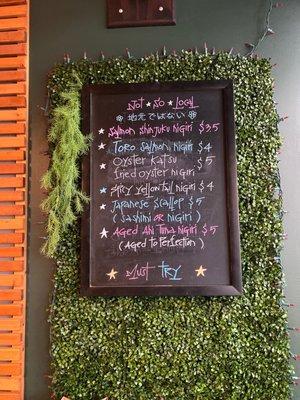 Not ★ So ★ Local
❊ 地元ではない ❊
★ Salmon Shinjuku Nigiri $3.5
★ Toro Salmon Nigiri $4
★ Oyster Katsu $5
Fried Oyster Nigiri
★ Spicy Yellowtail Nigiri $4
★ Japanese Scallop $5
(Sashimi or Nigiri)
★ Aged Ahi Tuna Nigiri $5
(Aged to Perfection)
★ Must Try ★